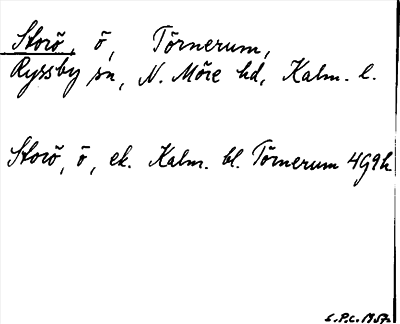 Storö, ö, Törnerum,
Ryssby sn, N. Möre hd, Kalm. l.
Storö, ö, ek. Kalm. bl. Törnerum 4G9h
S.P.C. 1957.